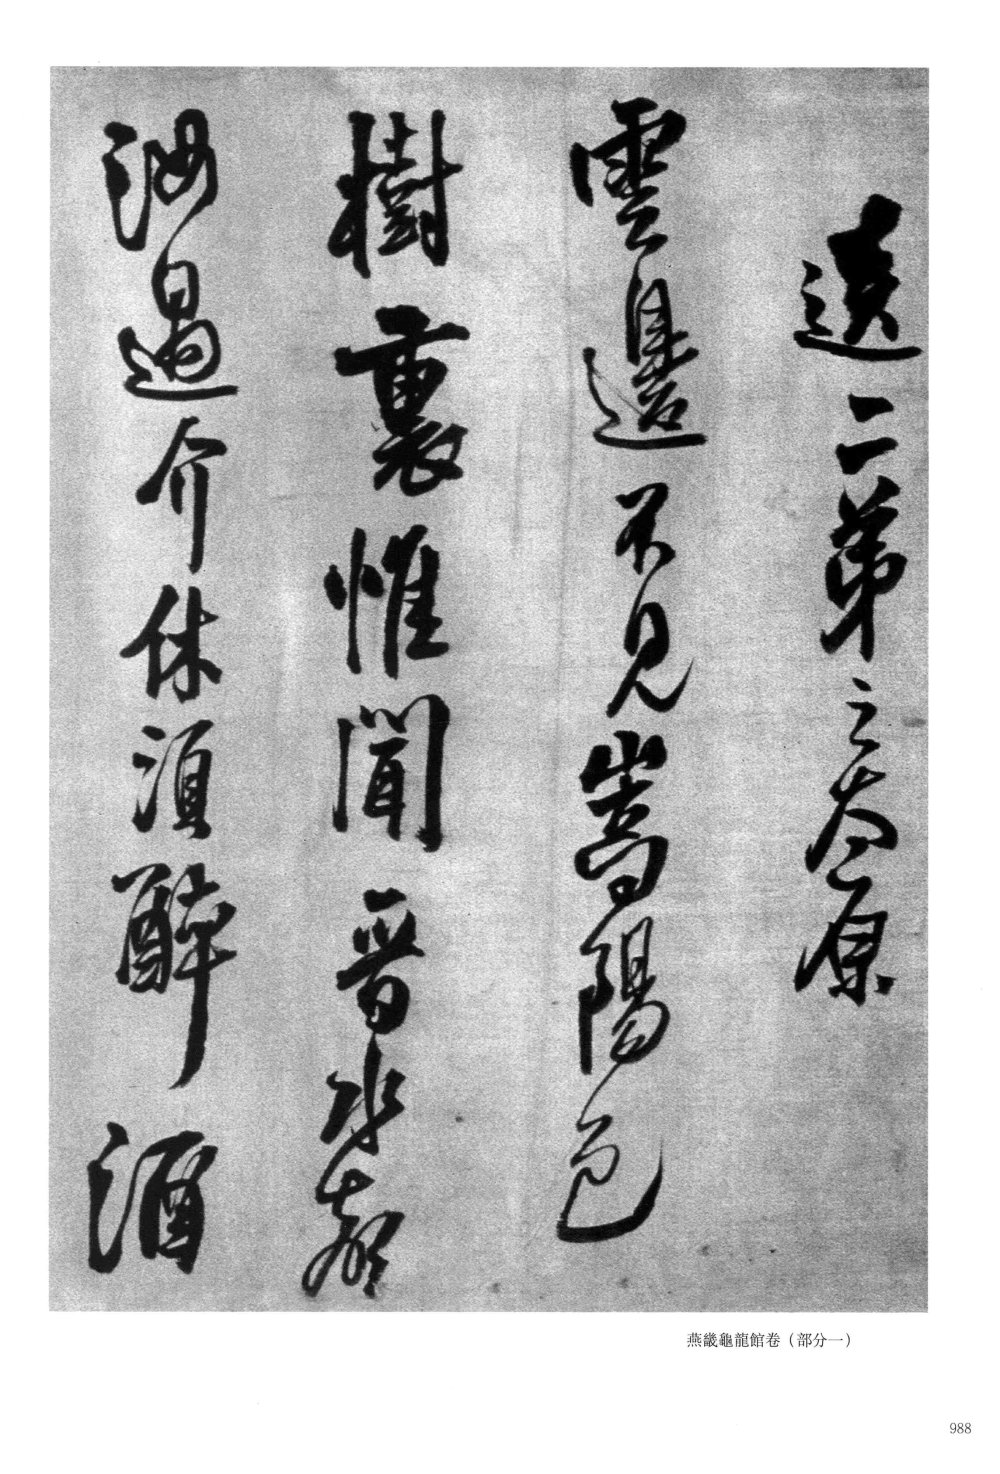 送二弟之太原
雲邊不見嵩陽色
樹裏惟聞晉水聲
汝過介休須醉酒
燕畿龜龍館卷（部分一）
988